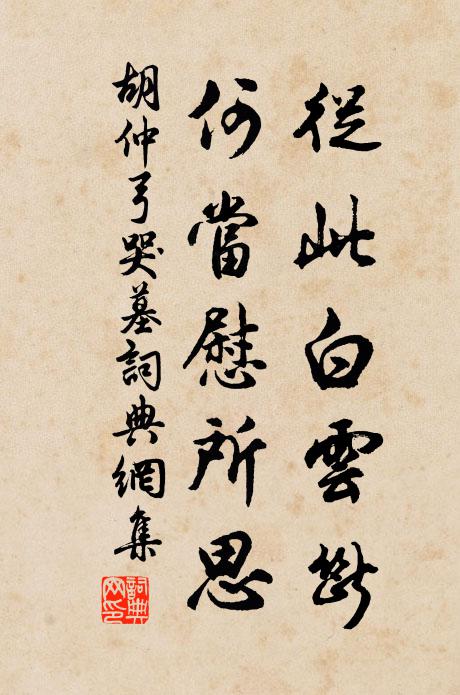 從此白雲斷
何當慰所思
胡仲弓哭墓詞典網集
詞典網印